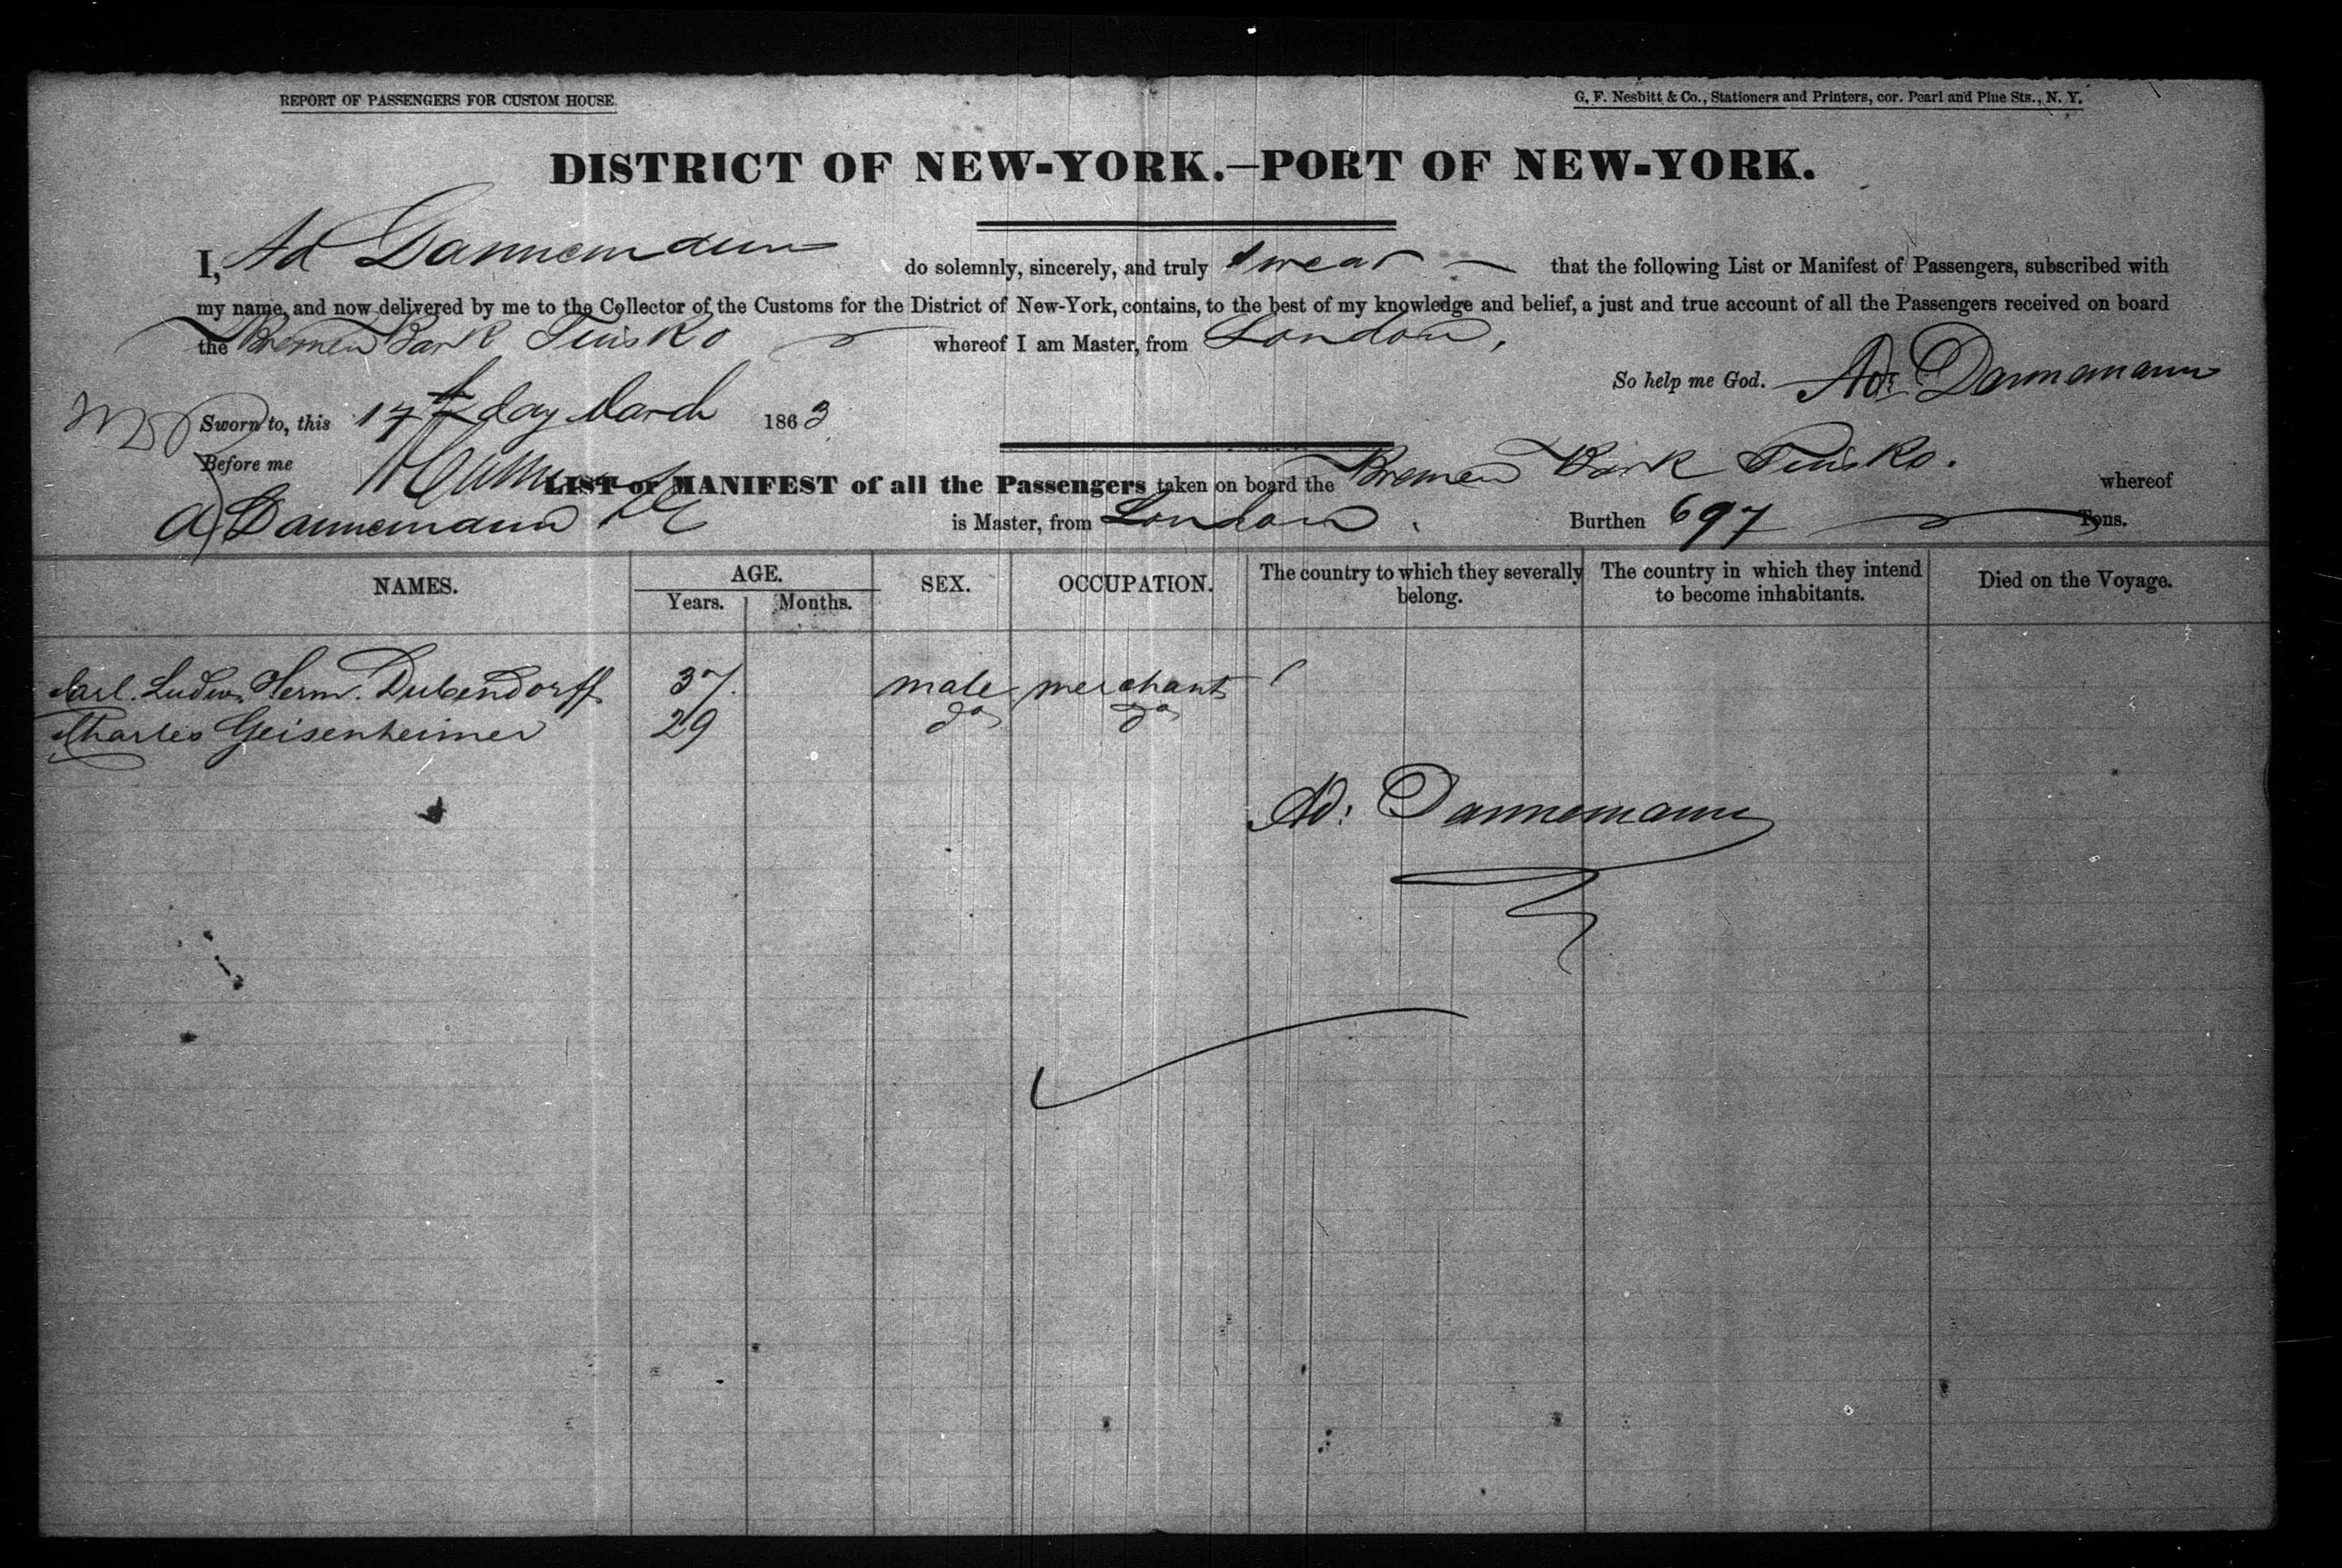 REPORT OF PASSENGERS FOR CUSTOM HOUSE.
G. F. Nesbitt & Co., Stationers and Printers, cor. Pearl and Pine Sts., N. Y.
DISTRICT OF NEW-YORK.—PORT OF NEW-YORK.
I, Ad Dannemann do solemnly, sincerely, and truly swear that the following List or Manifest of Passengers, subscribed with
my name, and now delivered by me to the Collector of the Customs for the District of New-York, contains, to the best of my knowledge and belief, a just and true account of all the Passengers received on board
the Bremen Bark Tuisko whereof I am Master, from London,
So help me God. Ad: Dannemann
Sworn to, this 17th day March 1863
Before me
LIST or MANIFEST of all the Passengers taken on board the Bremen Bark Tuisko. whereof
A Dannemann is Master, from London. Burthen 697 Tons.
NAMES. AGE. SEX. OCCUPATION. The country to which they severally belong. The country in which they intend to become inhabitants. Died on the Voyage.
Years. Months.
Carl. Ludw. Herm. Dubendorff 37. male merchant
Charles Geisenheimer 29 do do
Ad: Dannemann